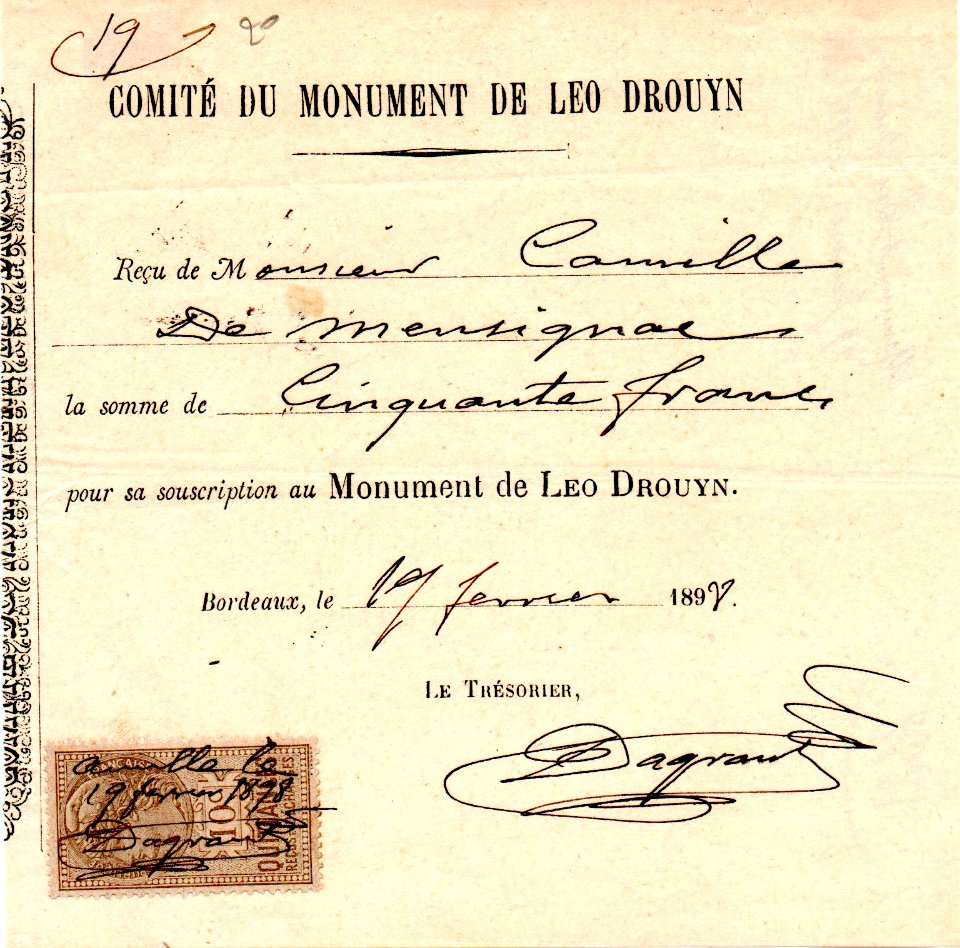 19 20
COMITÉ DU MONUMENT DE LEO DROUYN
Reçu de Monsieur Camille
De Mensignac
la somme de Cinquante francs
pour sa souscription au Monument de LEO DROUYN.
Bordeaux, le 19 fevrier 1898.
LE TRÉSORIER,
Dagrant
annulle le
19 fevrier 1898
Dagrant
10 c
QUITTANCES